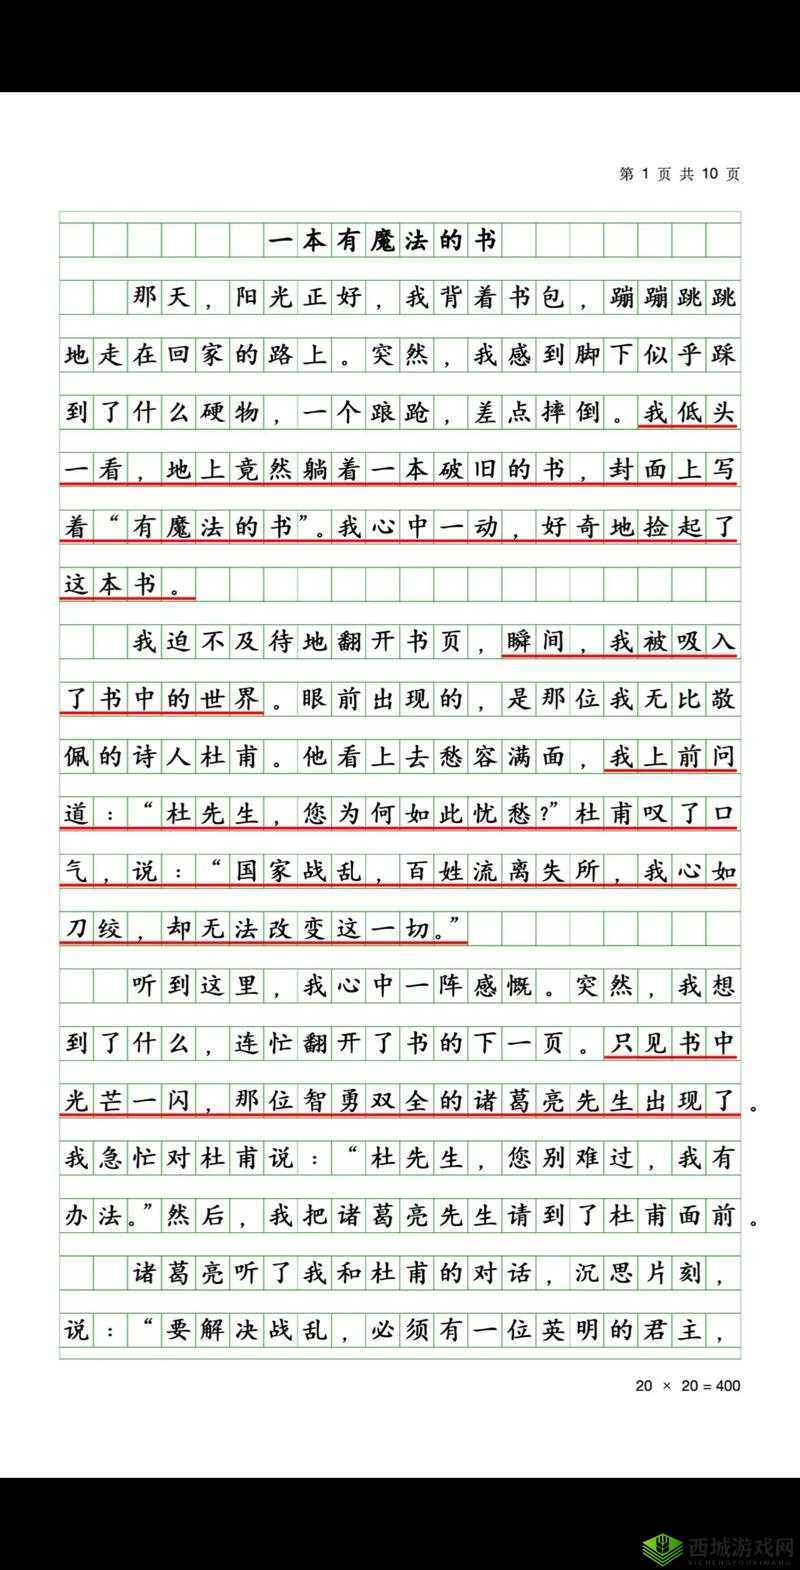 第 1 页 共 10 页
一本有魔法的书
那天，阳光正好，我背着书包，蹦蹦跳跳
地走在回家的路上。突然，我感到脚下似乎踩
到了什么硬物，一个踉跄，差点摔倒。我低头
一看，地上竟然躺着一本破旧的书，封面上写
着“有魔法的书”。我心中一动，好奇地捡起了
这本书。
我迫不及待地翻开书页，瞬间，我被吸入
了书中的世界。眼前出现的，是那位我无比敬
佩的诗人杜甫。他看上去愁容满面，我上前问
道：“杜先生，您为何如此忧愁？”杜甫叹了口
气，说：“国家战乱，百姓流离失所，我心如
刀绞，却无法改变这一切。”
听到这里，我心中一阵感慨。突然，我想
到了什么，连忙翻开了书的下一页。只见书中
光芒一闪，那位智勇双全的诸葛亮先生出现了。
我急忙对杜甫说：“杜先生，您别难过，我有
办法。”然后，我把诸葛亮先生请到了杜甫面前。
诸葛亮听了我和杜甫的对话，沉思片刻，
说：“要解决战乱，必须有一位英明的君主，
20 × 20 = 400
西城游戏网
XICHENGYOUXIWANG